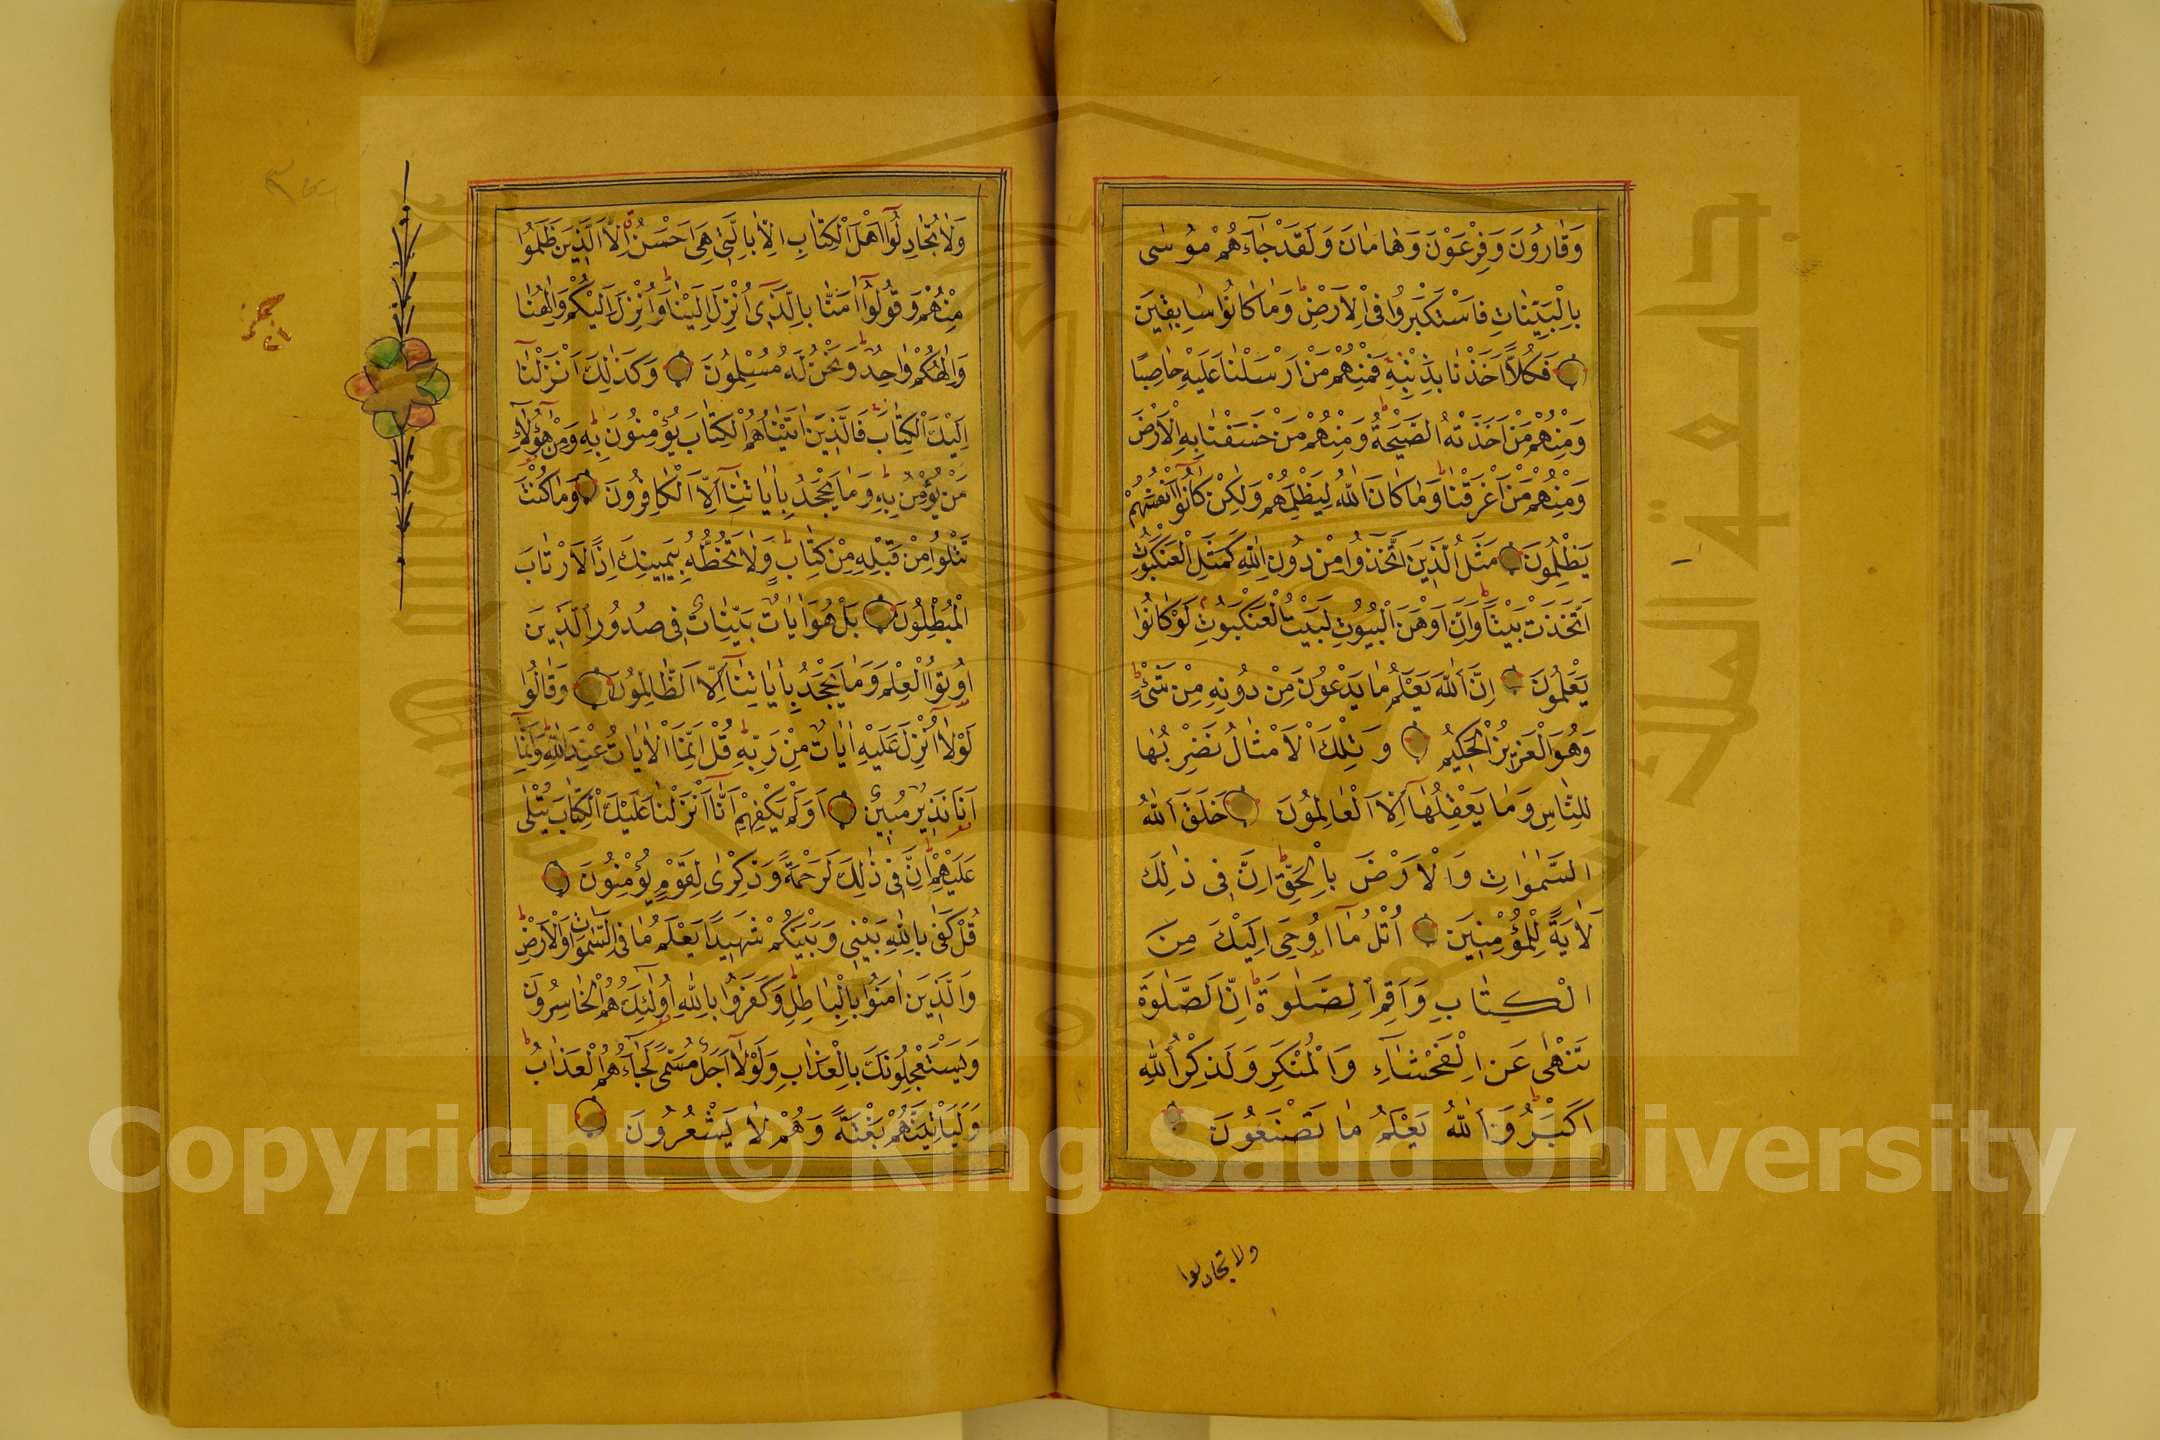 وَقَارُونَ وَفِرْعَوْنَ وَهَامَانَ وَلَقَدْ جَاءَهُمْ مُوسٰى
بِالْبَيِّنَاتِ فَاسْتَكْبَرُوا فِى الْاَرْضِ وَمَا كَانُوا سَابِقِينَ
فَكُلًّا اَخَذْنَا بِذَنْبِهِ فَمِنْهُمْ مَنْ اَرْسَلْنَا عَلَيْهِ حَاصِبًا
وَمِنْهُمْ مَنْ اَخَذَتْهُ الصَّيْحَةُ وَمِنْهُمْ مَنْ خَسَفْنَا بِهِ الْاَرْضَ
وَمِنْهُمْ مَنْ اَغْرَقْنَا وَمَا كَانَ اللّٰهُ لِيَظْلِمَهُمْ وَلٰكِنْ كَانُوا اَنْفُسَهُمْ
يَظْلِمُونَ مَثَلُ الَّذِينَ اتَّخَذُوا مِنْ دُونِ اللّٰهِ كَمَثَلِ الْعَنْكَبُوتِ
اِتَّخَذَتْ بَيْتًا وَاِنَّ اَوْهَنَ الْبُيُوتِ لَبَيْتُ الْعَنْكَبُوتِ لَوْ كَانُوا
يَعْلَمُونَ اِنَّ اللّٰهَ يَعْلَمُ مَا يَدْعُونَ مِنْ دُونِهِ مِنْ شَىْءٍ
وَهُوَ الْعَزِيزُ الْحَكِيمُ وَتِلْكَ الْاَمْثَالُ نَضْرِبُهَا
لِلنَّاسِ وَمَا يَعْقِلُهَا اِلَّا الْعَالِمُونَ خَلَقَ اللّٰهُ
السَّمٰوَاتِ وَالْاَرْضَ بِالْحَقِّ اِنَّ فِى ذٰلِكَ
لَاٰيَةً لِلْمُؤْمِنِينَ اُتْلُ مَا اُوحِىَ اِلَيْكَ مِنَ
الْكِتَابِ وَاَقِمِ الصَّلٰوةَ اِنَّ الصَّلٰوةَ
تَنْهٰى عَنِ الْفَحْشَاءِ وَالْمُنْكَرِ وَلَذِكْرُ اللّٰهِ
اَكْبَرُ وَاللّٰهُ يَعْلَمُ مَا تَصْنَعُونَ
ولا تجادلوا
وَلَا تُجَادِلُوا اَهْلَ الْكِتَابِ اِلَّا بِالَّتِى هِىَ اَحْسَنُ اِلَّا الَّذِينَ ظَلَمُوا
مِنْهُمْ وَقُولُوا اٰمَنَّا بِالَّذِى اُنْزِلَ اِلَيْنَا وَاُنْزِلَ اِلَيْكُمْ وَاِلٰهُنَا
وَاِلٰهُكُمْ وَاحِدٌ وَنَحْنُ لَهُ مُسْلِمُونَ وَكَذٰلِكَ اَنْزَلْنَا
اِلَيْكَ الْكِتَابَ فَالَّذِينَ اٰتَيْنَاهُمُ الْكِتَابَ يُؤْمِنُونَ بِهِ وَمِنْ هٰؤُلَاءِ
مَنْ يُؤْمِنُ بِهِ وَمَا يَجْحَدُ بِاٰيَاتِنَا اِلَّا الْكَافِرُونَ وَمَا كُنْتَ
تَتْلُوا مِنْ قَبْلِهِ مِنْ كِتَابٍ وَلَا تَخُطُّهُ بِيَمِينِكَ اِذًا لَارْتَابَ
الْمُبْطِلُونَ بَلْ هُوَ اٰيَاتٌ بَيِّنَاتٌ فِى صُدُورِ الَّذِينَ
اُوتُوا الْعِلْمَ وَمَا يَجْحَدُ بِاٰيَاتِنَا اِلَّا الظَّالِمُونَ وَقَالُوا
لَوْلَا اُنْزِلَ عَلَيْهِ اٰيَاتٌ مِنْ رَبِّهِ قُلْ اِنَّمَا الْاٰيَاتُ عِنْدَ اللّٰهِ وَاِنَّمَا
اَنَا نَذِيرٌ مُبِينٌ اَوَلَمْ يَكْفِهِمْ اَنَّا اَنْزَلْنَا عَلَيْكَ الْكِتَابَ يُتْلٰى
عَلَيْهِمْ اِنَّ فِى ذٰلِكَ لَرَحْمَةً وَذِكْرٰى لِقَوْمٍ يُؤْمِنُونَ
قُلْ كَفٰى بِاللّٰهِ بَيْنِى وَبَيْنَكُمْ شَهِيدًا يَعْلَمُ مَا فِى السَّمٰوَاتِ وَالْاَرْضِ
وَالَّذِينَ اٰمَنُوا بِالْبَاطِلِ وَكَفَرُوا بِاللّٰهِ اُولٰئِكَ هُمُ الْخَاسِرُونَ
وَيَسْتَعْجِلُونَكَ بِالْعَذَابِ وَلَوْلَا اَجَلٌ مُسَمًّى لَجَاءَهُمُ الْعَذَابُ
وَلَيَاْتِيَنَّهُمْ بَغْتَةً وَهُمْ لَا يَشْعُرُونَ
Copyright © King Saud University